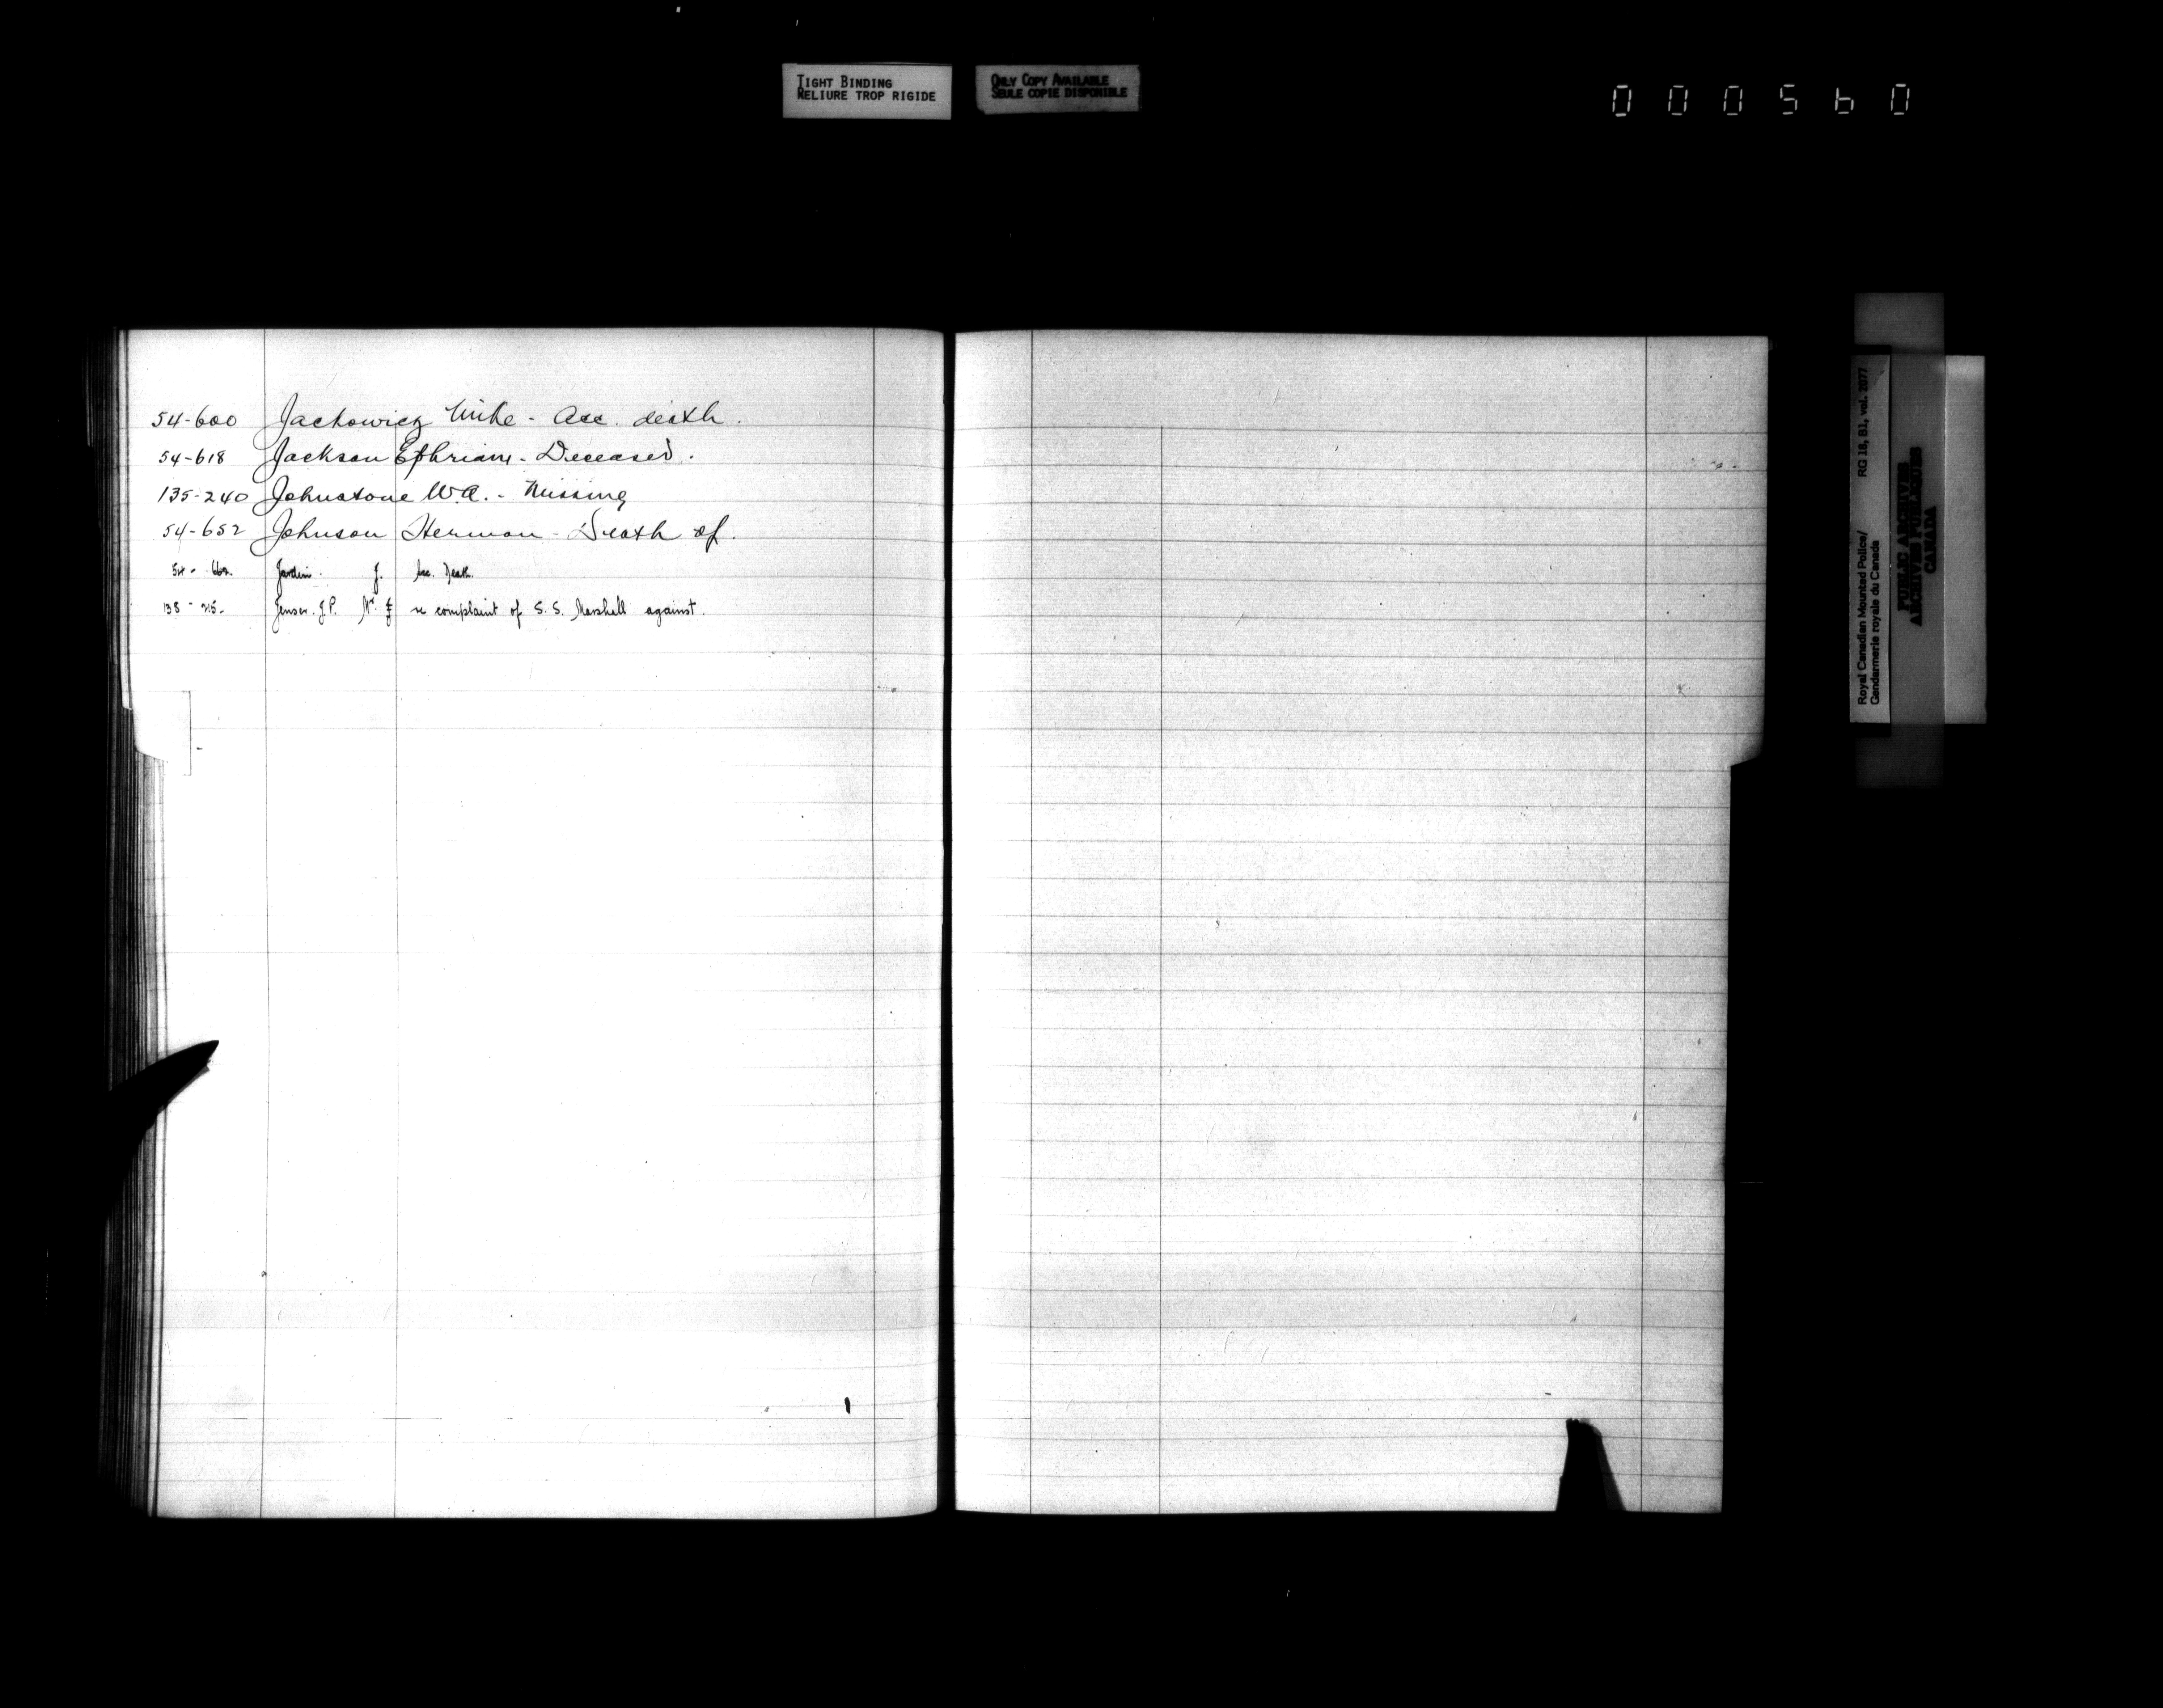 TIGHT BINDING
RELIURE TROP RIGIDE
ONLY COPY AVAILABLE
SEULE COPIE DISPONIBLE
000560
54-600 Jachowicz Mike - Acc. death.
54-618 Jackson Ephriam - Deceased.
135-240 Johnstone W.A. - Missing
54-652 Johnson Herman - Death of.
54 - Jardin. J. Acc. Death.
138 - 215. Jensen. J.P. re complaint of S. S. Marshall against.
Royal Canadian Mounted Police/ RG 18, B1, vol. 2077
Gendarmerie royale du Canada
PUBLIC ARCHIVES
ARCHIVES PUBLIQUES
CANADA